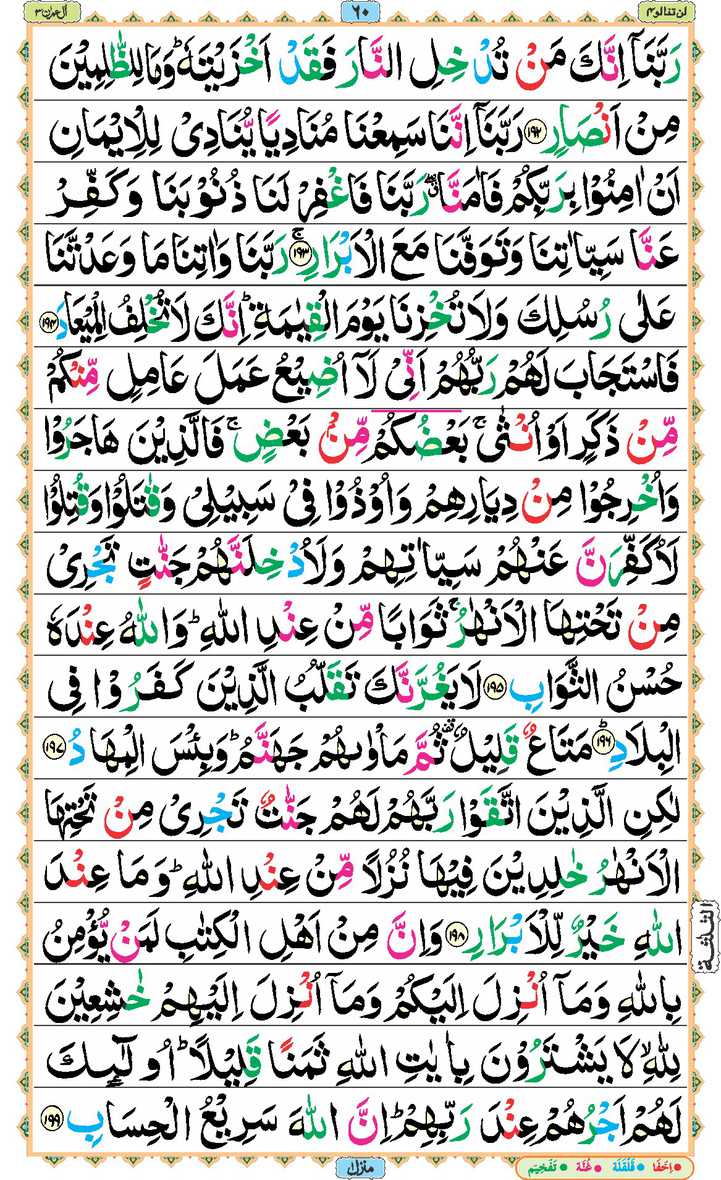 لن تنالوا ٤ ٦٠ اٰل عمرٰن ٣
رَبَّنَاۤ اِنَّكَ مَنْ تُدْخِلِ النَّارَ فَقَدْ اَخْزَيْتَهٗ ؕ وَمَا لِلظّٰلِمِيْنَ
مِنْ اَنْصَارٍ ﴿۱۹۲﴾ رَبَّنَاۤ اِنَّنَا سَمِعْنَا مُنَادِيًا يُّنَادِىْ لِلْاِيْمَانِ
اَنْ اٰمِنُوْا بِرَبِّكُمْ فَاٰمَنَّا ۖۗ رَبَّنَا فَاغْفِرْ لَنَا ذُنُوْبَنَا وَكَفِّرْ
عَنَّا سَيِّاٰتِنَا وَتَوَفَّنَا مَعَ الْاَبْرَارِ ۚ ﴿۱۹۳﴾ رَبَّنَا وَاٰتِنَا مَا وَعَدْتَّنَا
عَلٰى رُسُلِكَ وَلَا تُخْزِنَا يَوْمَ الْقِيٰمَةِ ؕ اِنَّكَ لَا تُخْلِفُ الْمِيْعَادَ ﴿۱۹۴﴾
فَاسْتَجَابَ لَهُمْ رَبُّهُمْ اَنِّىْ لَاۤ اُضِيْعُ عَمَلَ عَامِلٍ مِّنْكُمْ
مِّنْ ذَكَرٍ اَوْ اُنْثٰى ۚ بَعْضُكُمْ مِّنْۢ بَعْضٍ ۚ فَالَّذِيْنَ هَاجَرُوْا
وَاُخْرِجُوْا مِنْ دِيَارِهِمْ وَاُوْذُوْا فِىْ سَبِيْلِىْ وَقٰتَلُوْا وَقُتِلُوْا
لَاُكَفِّرَنَّ عَنْهُمْ سَيِّاٰتِهِمْ وَلَاُدْخِلَنَّهُمْ جَنّٰتٍ تَجْرِىْ
مِنْ تَحْتِهَا الْاَنْهٰرُ ۚ ثَوَابًا مِّنْ عِنْدِ اللّٰهِ ؕ وَاللّٰهُ عِنْدَهٗ
حُسْنُ الثَّوَابِ ﴿۱۹۵﴾ لَا يَغُرَّنَّكَ تَقَلُّبُ الَّذِيْنَ كَفَرُوْا فِى
الْبِلَادِ ؕ ﴿۱۹۶﴾ مَتَاعٌ قَلِيْلٌ ۟ ثُمَّ مَاْوٰىهُمْ جَهَنَّمُ ؕ وَبِئْسَ الْمِهَادُ ﴿۱۹۷﴾
لٰكِنِ الَّذِيْنَ اتَّقَوْا رَبَّهُمْ لَهُمْ جَنّٰتٌ تَجْرِىْ مِنْ تَحْتِهَا
الْاَنْهٰرُ خٰلِدِيْنَ فِيْهَا نُزُلًا مِّنْ عِنْدِ اللّٰهِ ؕ وَمَا عِنْدَ
اللّٰهِ خَيْرٌ لِّلْاَبْرَارِ ﴿۱۹۸﴾ وَاِنَّ مِنْ اَهْلِ الْكِتٰبِ لَمَنْ يُّؤْمِنُ
الثلثة
بِاللّٰهِ وَمَاۤ اُنْزِلَ اِلَيْكُمْ وَمَاۤ اُنْزِلَ اِلَيْهِمْ خٰشِعِيْنَ
لِلّٰهِ ۙ لَا يَشْتَرُوْنَ بِاٰيٰتِ اللّٰهِ ثَمَنًا قَلِيْلًا ؕ اُولٰٓئِكَ
لَهُمْ اَجْرُهُمْ عِنْدَ رَبِّهِمْ ؕ اِنَّ اللّٰهَ سَرِيْعُ الْحِسَابِ ﴿۱۹۹﴾
منزل ۱ اِخْفَا قَلْقَلَه غُنَّه تَفْخِيْم